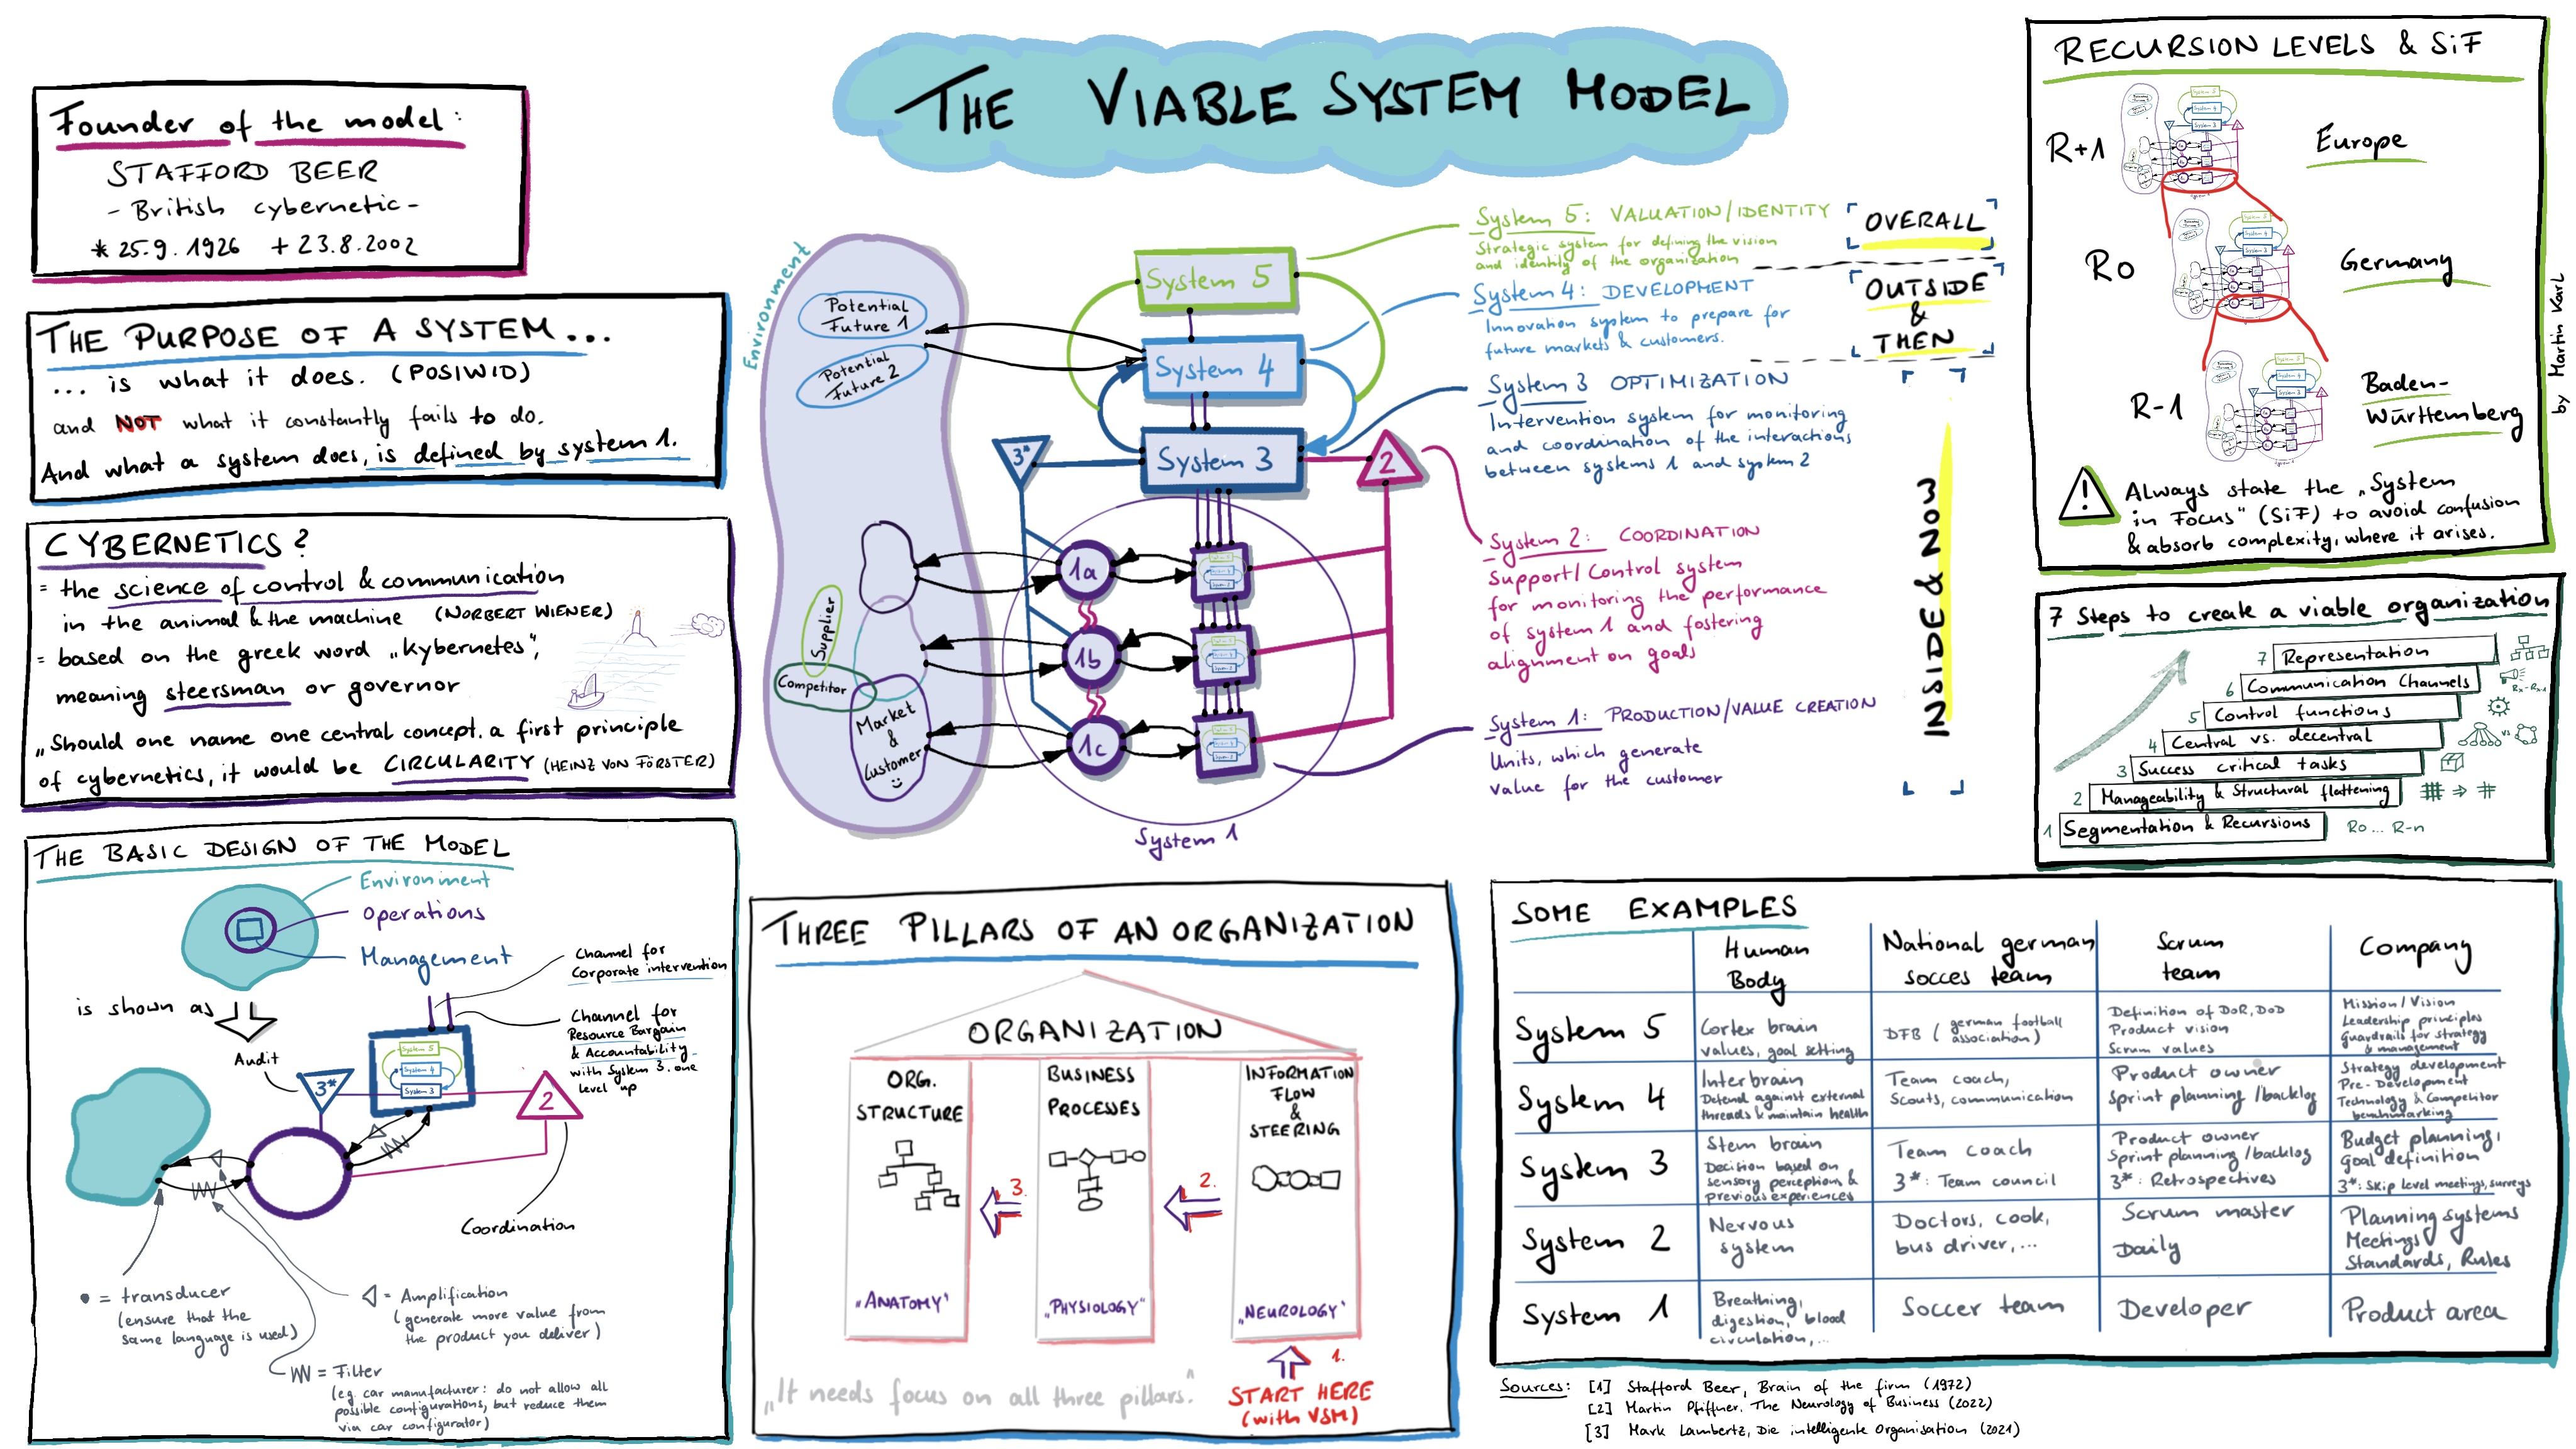 THE VIABLE SYSTEM MODEL
Founder of the model:
STAFFORD BEER
- British cybernetic -
* 25.9.1926 + 23.8.2002
THE PURPOSE OF A SYSTEM...
... is what it does. (POSIWID)
and NOT what it constantly fails to do.
And what a system does, is defined by system 1.
CYBERNETICS?
= the science of control & communication
in the animal & the machine (NORBERT WIENER)
= based on the greek word „kybernetes",
meaning steersman or governor
„Should one name one central concept. a first principle
of cybernetics, it would be CIRCULARITY (HEINZ VON FÖRSTER)
THE BASIC DESIGN OF THE MODEL
Environment
Operations
Management
is shown as
Channel for
Corporate intervention
Channel for
Resource Bargain
& Accountability
with System 3. one
level up
Audit
3*
System 5
System 4
System 3
2
Coordination
• = transducer
(ensure that the
same language is used)
= Amplification
(generate more value from
the product you deliver)
= Filter
(eg. car manufacturer: do not allow all
possible configurations, but reduce them
via car configurator)
Environment
Potential
Future 1
Potential
Future 2
Supplier
Competitor
Market
&
Customer
System 5
System 4
System 3
3*
2
1a
1b
1c
System 1
System 5: VALUATION/IDENTITY
Strategic system for defining the vision
and identity of the organization
System 4: DEVELOPMENT
Innovation system to prepare for
future markets & customers.
System 3 OPTIMIZATION
Intervention system for monitoring
and coordination of the interactions
between systems 1 and system 2
System 2: COORDINATION
Support/Control system
for monitoring the performance
of system 1 and fostering
alignment on goals
System 1: PRODUCTION/VALUE CREATION
Units, which generate
value for the customer
OVERALL
OUTSIDE
&
THEN
INSIDE & NOW
THREE PILLARS OF AN ORGANIZATION
ORGANIZATION
ORG.
STRUCTURE
„ANATOMY"
3.
BUSINESS
PROCESSES
„PHYSIOLOGY"
2.
INFORMATION
FLOW
&
STEERING
„NEUROLOGY"
1.
START HERE
(with VSM)
„It needs focus on all three pillars."
RECURSION LEVELS & SiF
R+1
Europe
R0
Germany
R-1
Baden-
Württemberg
Always state the „System
in Focus" (SiF) to avoid confusion
& absorb complexity, where it arises.
by Martin Karl
7 Steps to create a viable organization
7 Representation
6 Communication Channels
5 Control functions
4 Central vs. decentral
vs
3 Success critical tasks
2 Manageability & Structural flattening
1 Segmentation & Recursions
R0 ... R-n
SOME EXAMPLES
Human
Body
National german
socces team
Scrum
team
Company
System 5
Cortex brain
values, goal setting
DFB (german football
association)
Definition of DoR, DoD
Product vision
Scrum values
Mission/Vision
Leadership principles
Guardrails for strategy
& management
System 4
Interbrain
Defend against external
threads & maintain health
Team coach,
Scouts, communication
Product owner
Sprint planning /backlog
Strategy development
Pre-Development
Technology & Competitor
benchmarking
System 3
Stem brain
Decision based on
sensory perception &
previous experiences
Team coach
3*: Team council
Product owner
Sprint planning /backlog
3*: Retrospectives
Budget planning,
Goal definition
3*: Skip level meetings, surveys
System 2
Nervous
system
Doctors, cook,
bus driver, ...
Scrum master
Daily
Planning systems
Meetings
Standards, Rules
System 1
Breathing,
digestion, blood
circulation, ...
Soccer team
Developer
Product area
Sources: [1] Stafford Beer, Brain of the firm (1972)
[2] Martin Pfiffner, The Neurology of Business (2022)
[3] Mark Lambertz, Die intelligente Organisation (2021)